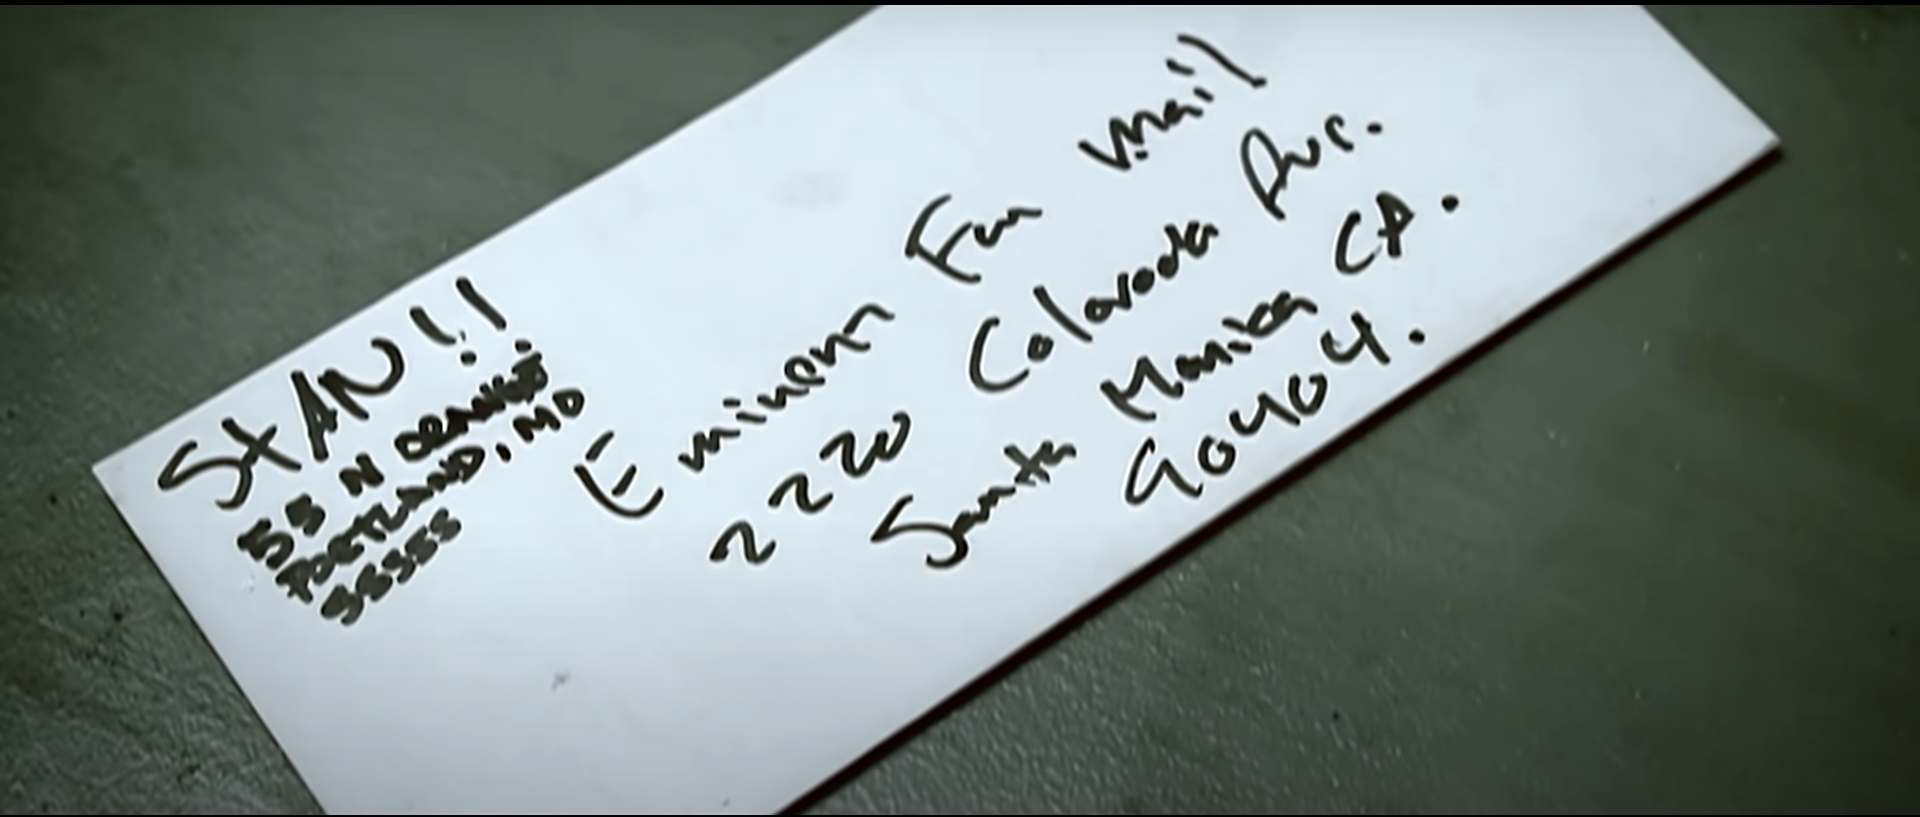 STAN!!
55 N
PORTLAND, MO
55555
Eminem Fan Mail
2220 Colorado Ave.
Santa Monica CA.
90404.